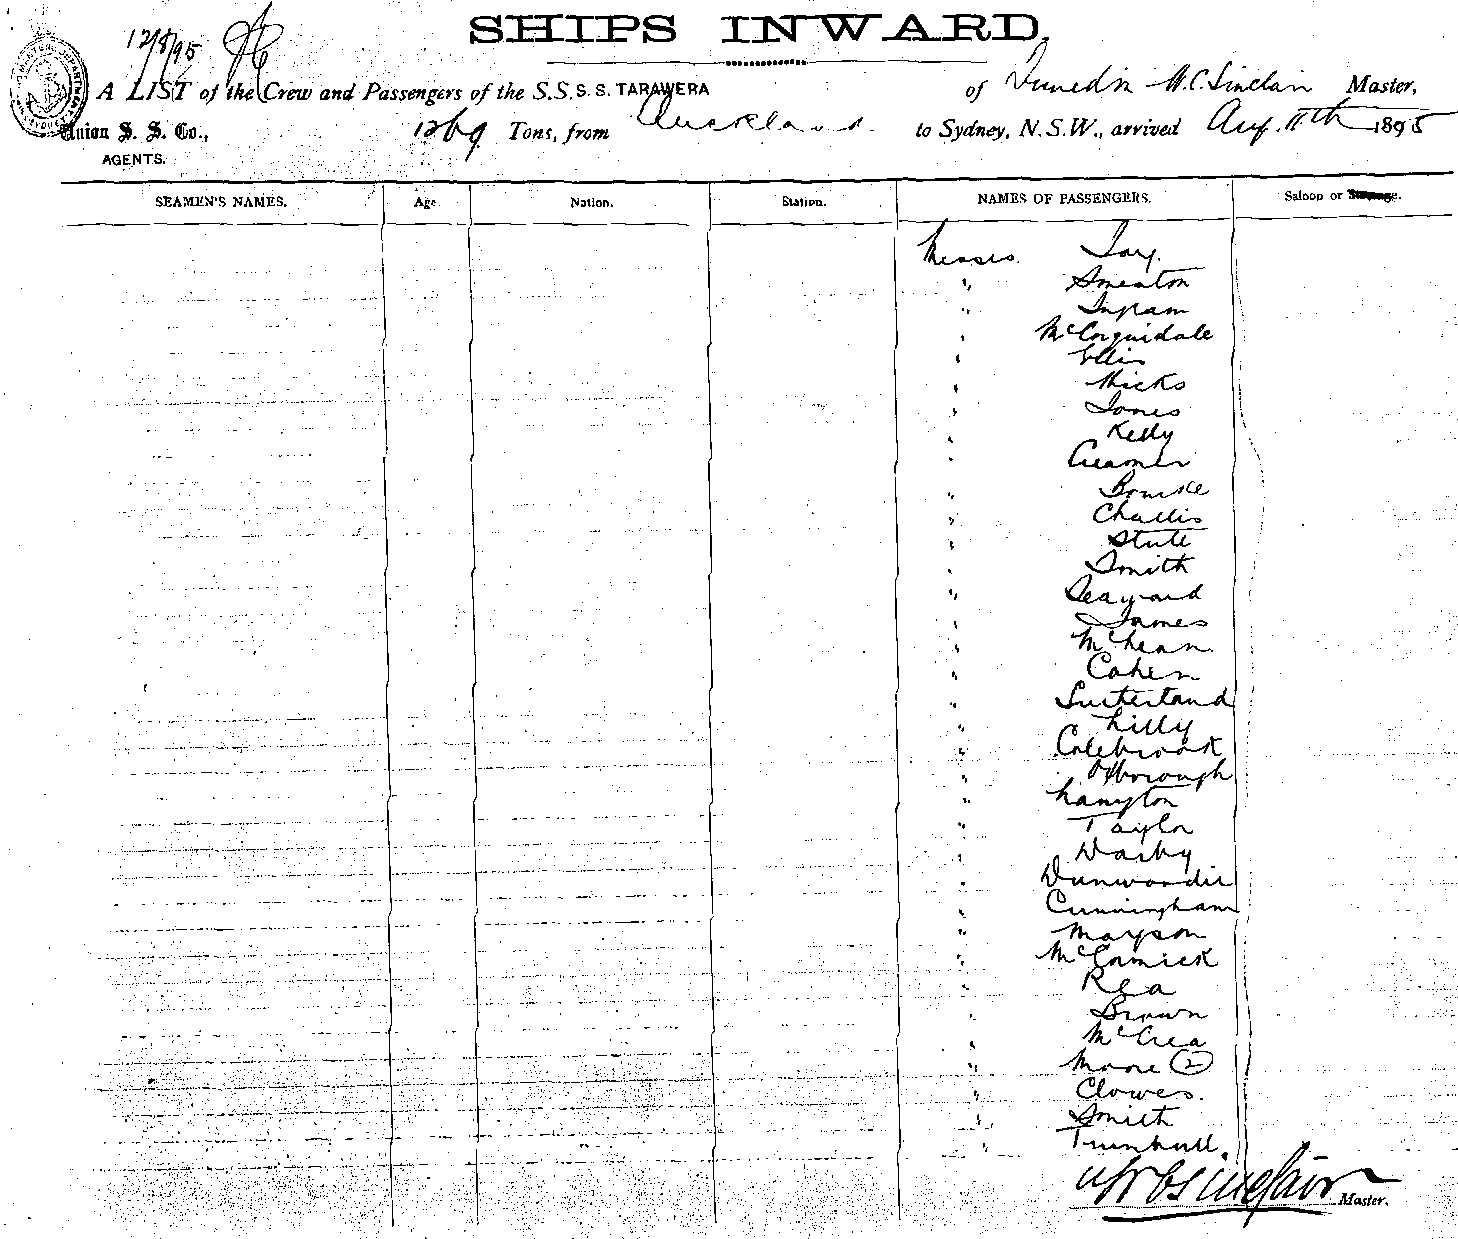 SHIPS INWARD.
12/8/95
A LIST of the Crew and Passengers of the S.S. S. S. TARAWERA of Dunedin W.C. Sinclair Master,
Union S. S. Co., 1269 Tons, from Auckland to Sydney, N.S.W., arrived Aug. 11th 1895
AGENTS.
SEAMEN'S NAMES. Age Nation. Station. NAMES OF PASSENGERS. Saloon or Steerage.
Messrs.
" Smeaton
" Ingram
" McCorquidale
" Ellis
" Hicks
" Jones
" Kelly
" Creamer
" Bourke
" Challis
" Stute
" Smith
" Seaward
" James
" McLean
" Cohen
" Sutherland
" Lilly
" Colebrook
" Oxborough
" Langton
" Taylor
" Darby
" Dunwoodie
" Cunningham
" Mayson
" McCormick
" Rea
" Brown
" McCrea
" Moore (2)
" Clowes.
" Smith
" Turnbull.
W C Sinclair Master.